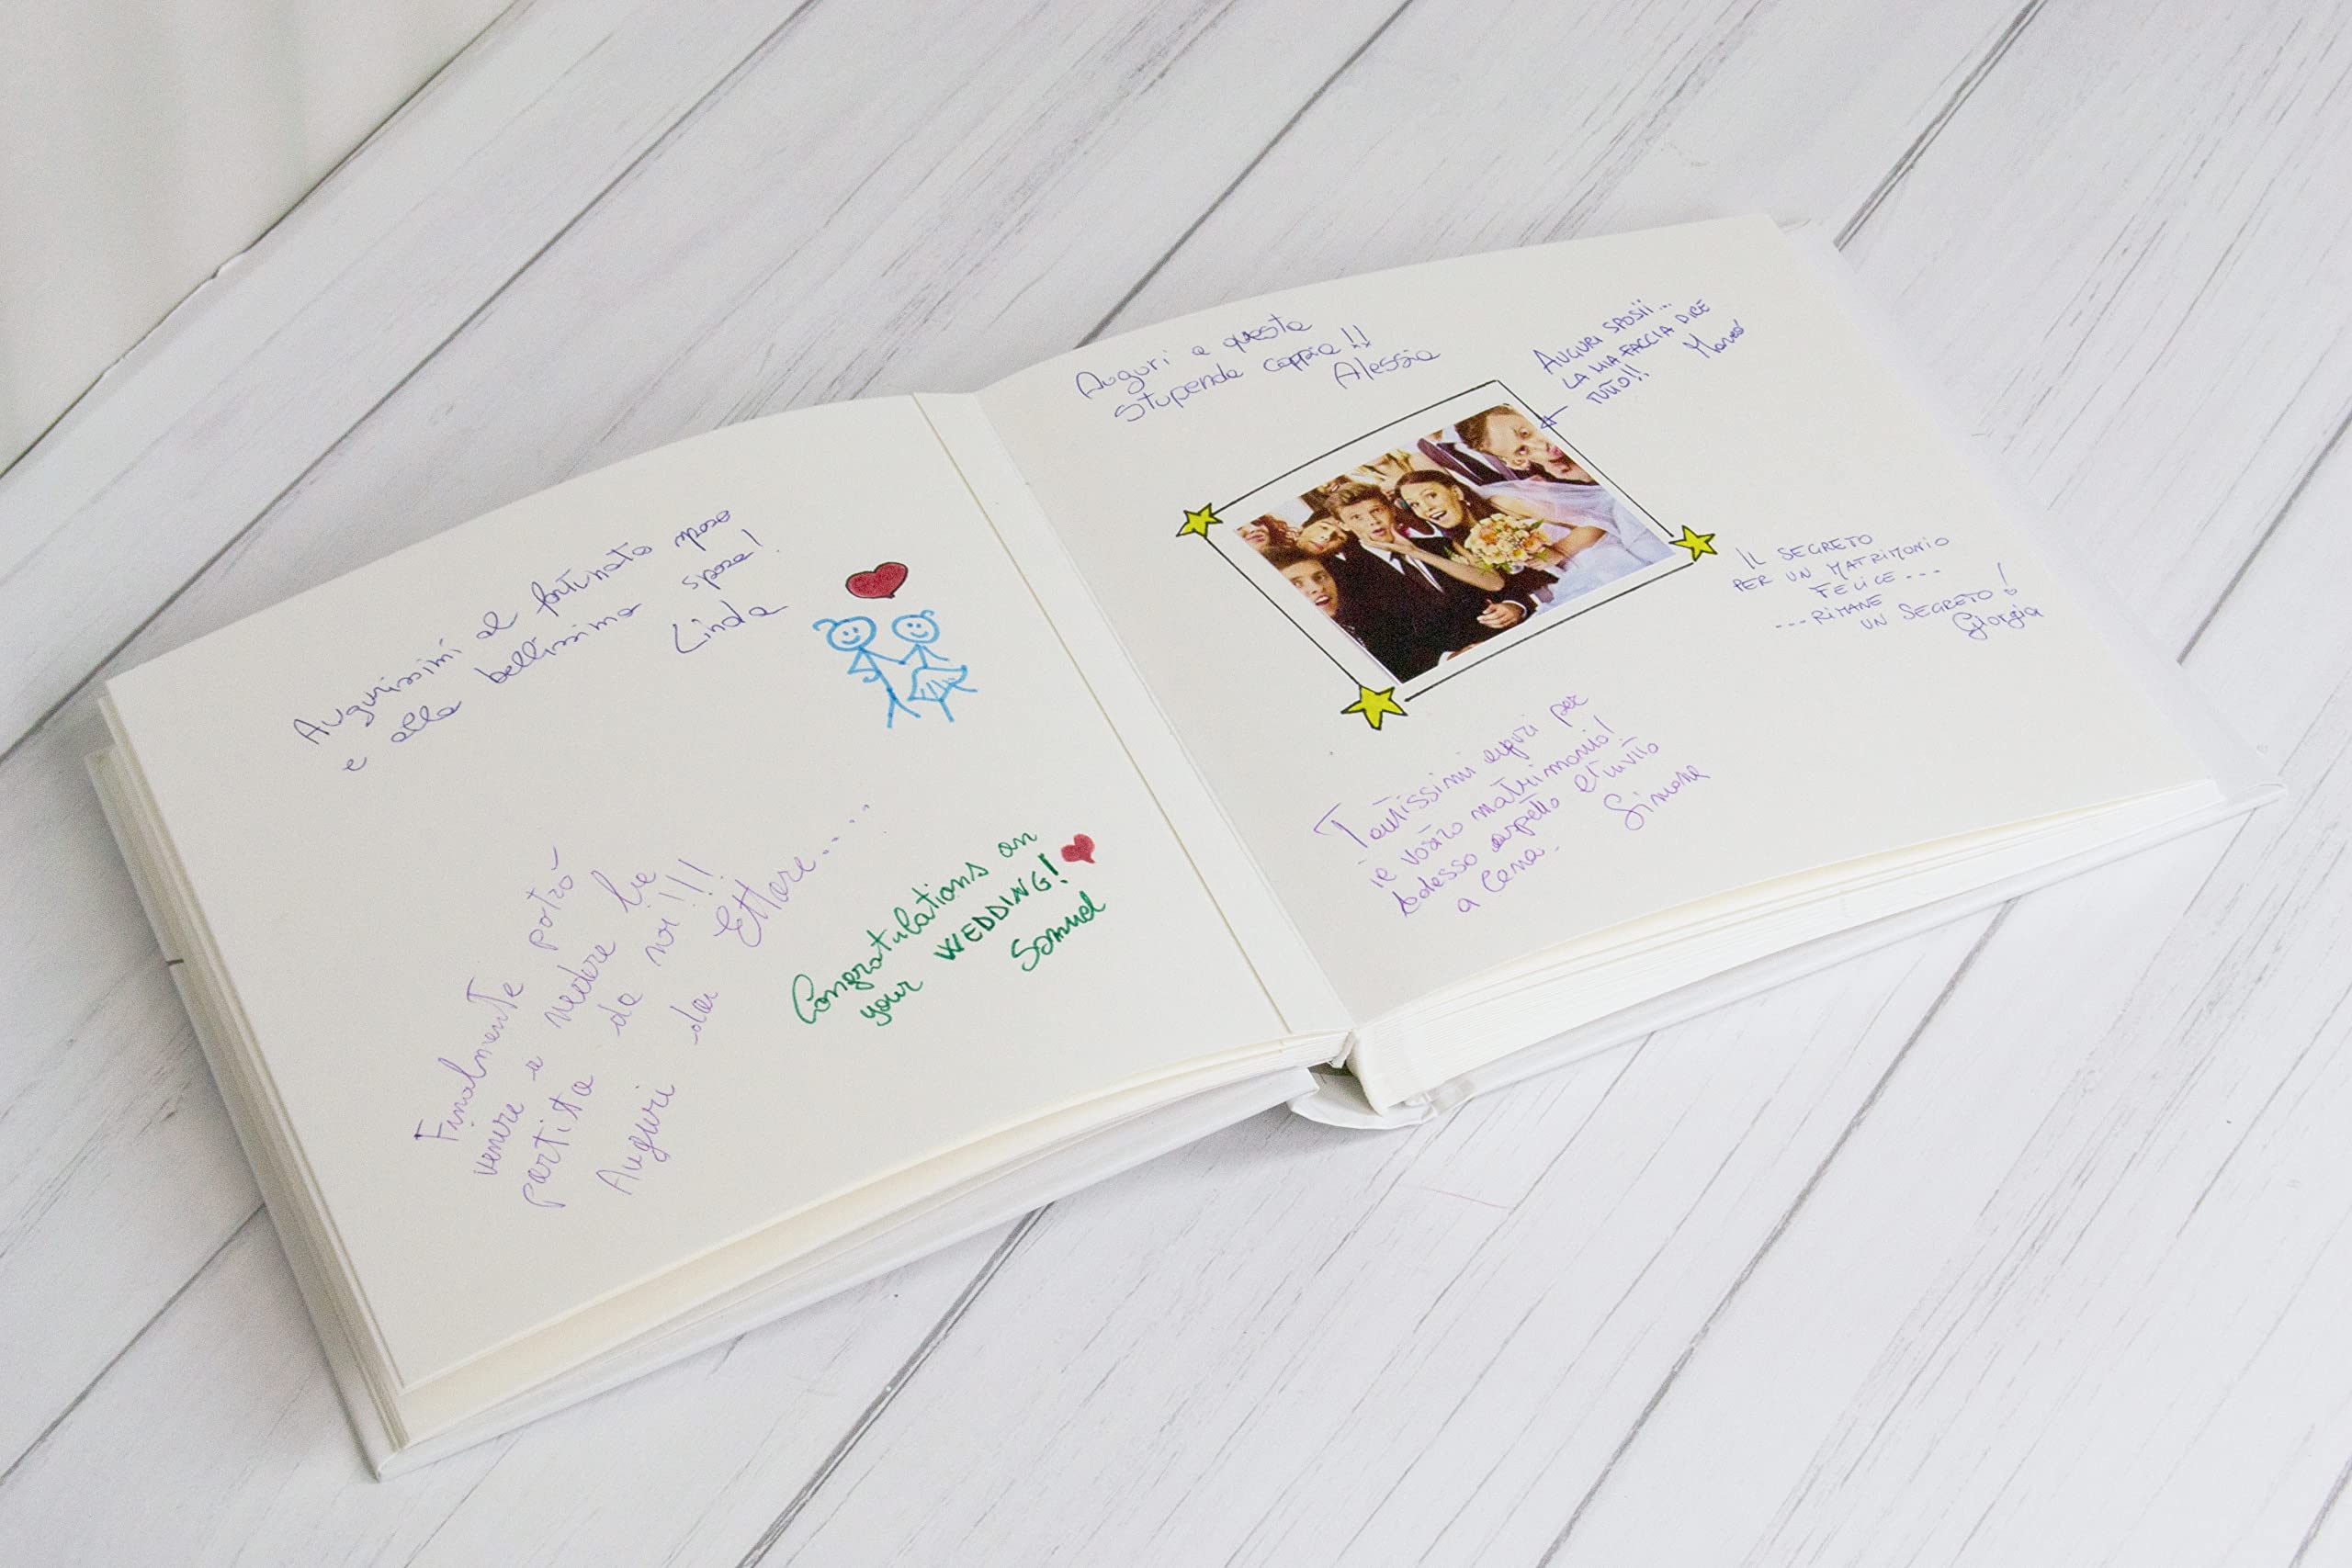 Augurissimi al fortunato sposo
e alla bellissima sposa!
Linda
Finalmente potrò
venire a vedere la
partita da voi!!!
Auguri da Ettore.....
Congratulations on
your WEDDING!
Samuel
Auguri a questa
stupenda coppia!!
Alessia
AUGURI SPOSII...
LA MIA FACCIA DICE
TUTTO!!
Marco
IL SEGRETO
PER UN MATRIMONIO
FELICE ---
---RIMANE
UN SEGRETO!
Giorgia
Tantissimi auguri per
il vostro matrimonio!
Adesso aspetto l'invito
a cena.
Simone